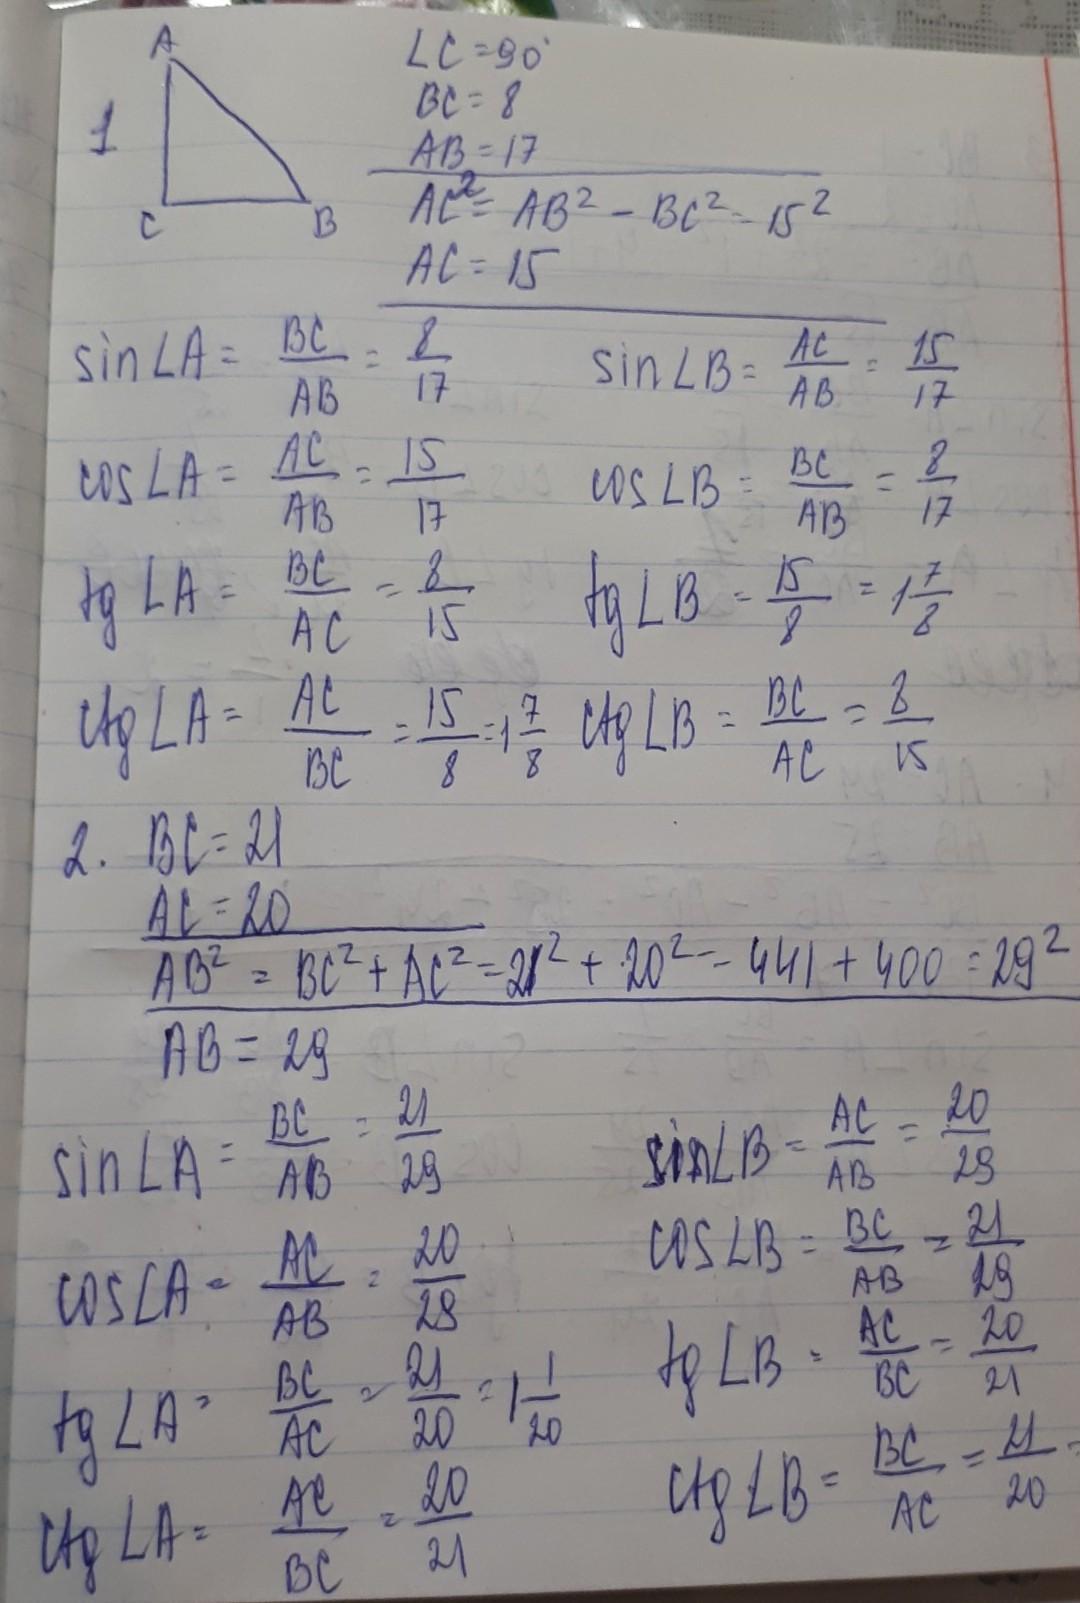 1
A
C
B
∠C = 90°
BC = 8
AB = 17
AC² = AB² - BC² = 15²
AC = 15
sin∠A = BC/AB = 8/17 sin∠B = AC/AB = 15/17
cos∠A = AC/AB = 15/17 cos∠B = BC/AB = 8/17
tg∠A = BC/AC = 8/15 tg∠B = 15/8 = 1 7/8
ctg∠A = AC/BC = 15/8 = 1 7/8 ctg∠B = BC/AC = 8/15
2. BC = 21
AC = 20
AB² = BC² + AC² = 21² + 20² = 441 + 400 = 29²
AB = 29
sin∠A = BC/AB = 21/29 sin∠B = AC/AB = 20/29
cos∠A = AC/AB = 20/29 cos∠B = BC/AB = 21/29
tg∠A = BC/AC = 21/20 = 1 1/20 tg∠B = AC/BC = 20/21
ctg∠A = AC/BC = 20/21 ctg∠B = BC/AC = 21/20 =